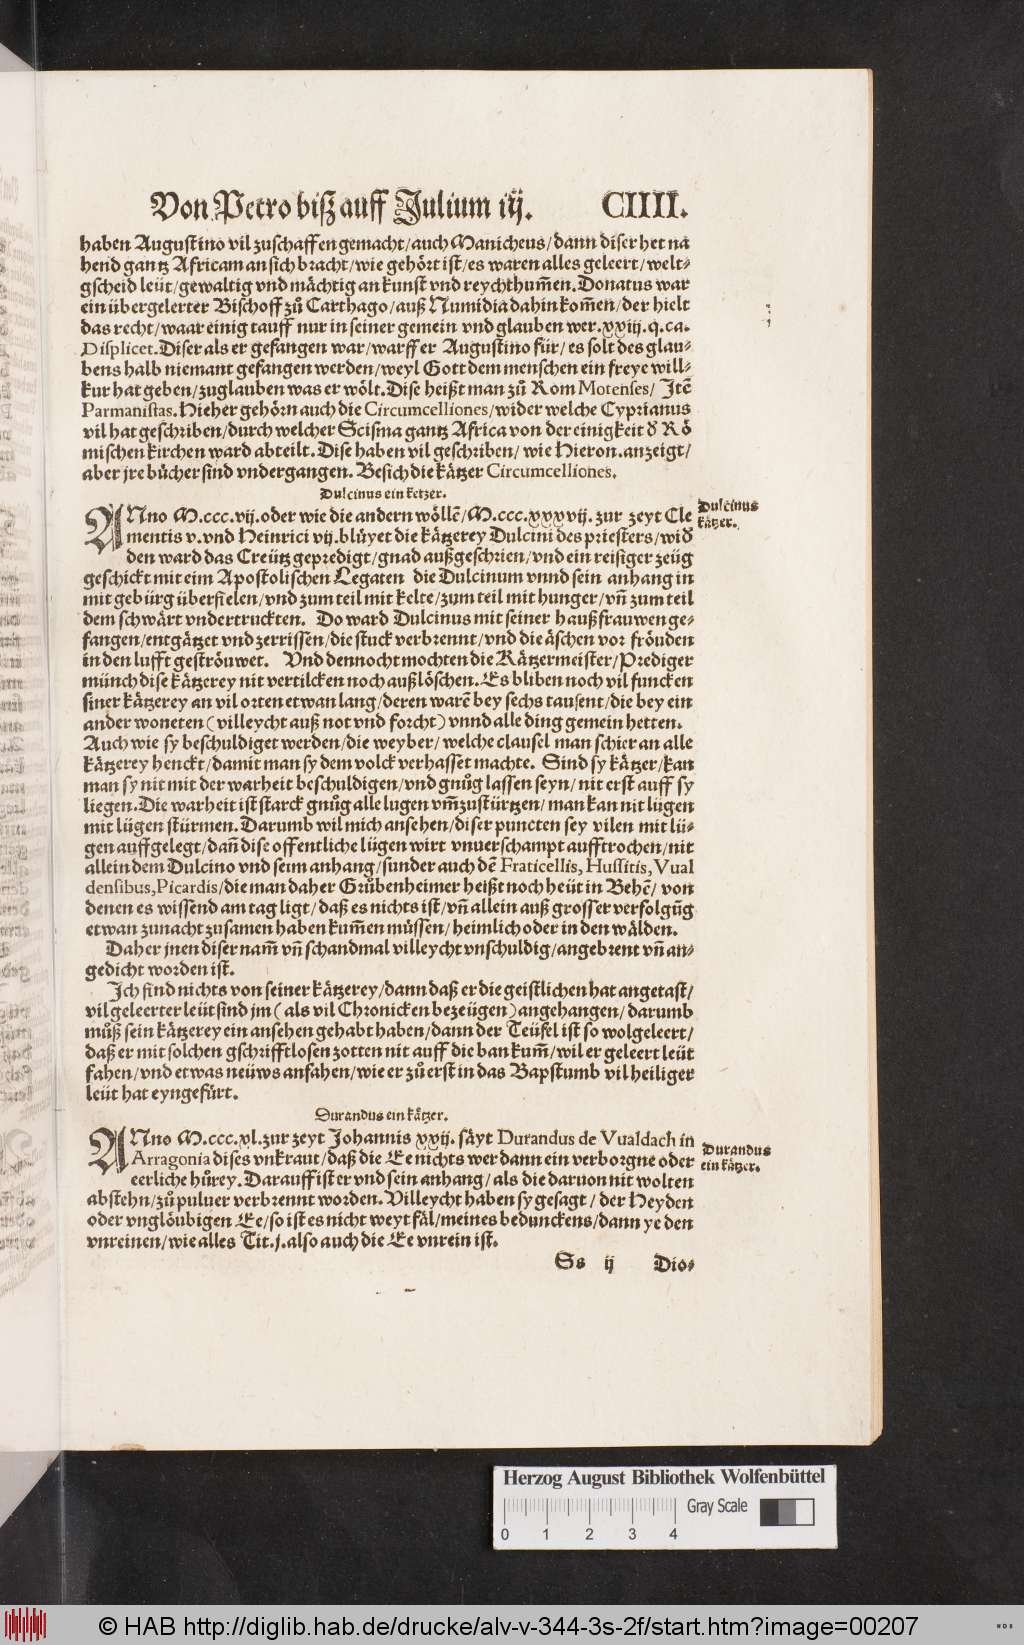 Von Petro biß auff Julium iij. CIIII.
haben Augustino vil zuschaffen gemacht/auch Manicheus/dann diser het na
hend gantz Africam an sich bracht/wie gehört ist/es waren alles geleert/welt-
gscheid leüt/gewaltig vnd mächtig an kunst vnd reychthum̃en. Donatus war
ein übergelerter Bischoff zů Carthago/auß Numidia dahin kom̃en/der hielt
das recht/waar einig tauff nur in seiner gemein vnd glauben wer.xxiij.q.ca.
Displicet. Diser als er gefangen war/warff er Augustino für/es solt des glau-
bens halb niemant gefangen werden/weyl Gott dem menschen ein freye will-
kur hat geben/zuglauben was er wölt. Dise heißt man zů Rom Motenses/ Itẽ
Parmanistas. Hieher gehörn auch die Circumcelliones/wider welche Cyprianus
vil hat geschriben/durch welcher Scisma gantz Africa von der einigkeit d̕ Rö
mischen kirchen ward abteilt. Dise haben vil geschriben/ wie Hieron. anzeigt/
aber jre bůcher sind vndergangen. Besich die kätzer Circumcelliones.
Dulcinus ein ketzer.
ANno M.ccc.vij. oder wie die andern wöllẽ/M.ccc.xxxvij. zur zeyt Cle
mentis v. vnd Heinrici vij. blůyet die kätzerey Dulcini des priesters/wid̕
den ward das Creütz gepredigt/gnad außgeschrien/vnd ein reisiger zeüg
geschickt mit eim Apostolischen Legaten die Dulcinum vnnd sein anhang in
mit gebürg überfielen/vnd zum teil mit kelte/zum teil mit hunger/vñ zum teil
dem schwärt vndertruckten. Do ward Dulcinus mit seiner haußfrauwen ge-
fangen/entgätzet vnd zerrissen/die stuck verbrennt/vnd die äschen vor fröuden
in den lufft geströuwet. Vnd dennocht mochten die Kätzermeister/Prediger
münch dise kätzerey nit vertilcken noch außlöschen. Es bliben noch vil funcken
siner kätzerey an vil orten etwan lang/deren warẽ bey sechs tausent/die bey ein
ander woneten (villeycht auß not vnd forcht) vnnd alle ding gemein hetten.
Auch wie sy beschuldiget werden/die weyber/ welche clausel man schier an alle
kätzerey henckt/damit man sy dem volck verhasset machte. Sind sy kätzer/kan
man sy nit mit der warheit beschuldigen/vnd gnůg lassen seyn/ nit erst auff sy
liegen. Die warheit ist starck gnůg alle lugen vm̃zustürtzen/ man kan nit lügen
mit lügen stürmen. Darumb wil mich ansehen/diser puncten sey vilen mit lü-
gen auffgelegt/dañ dise offentliche lügen wirt vnuerschampt aufftrochen/nit
allein dem Dulcino vnd seim anhang/sunder auch dẽ Fraticellis, Hussitis, Vual
densibus, Picardis/die man daher Grůbenheimer heißt noch heüt in Behẽ/ von
denen es wissend am tag ligt/ daß es nichts ist/vñ allein auß grosser verfolgũg
etwan zunacht zusamen haben kum̃en můssen/ heimlich oder in den wälden.
Daher jnen diser nam̃ vñ schandmal villeycht vnschuldig/angebrent vñ an-
gedicht worden ist.
Ich find nichts von seiner kätzerey/dann daß er die geistlichen hat angetast/
vil geleerter leüt sind jm (als vil Chronicken bezeügen) angehangen/ darumb
můß sein kätzerey ein ansehen gehabt haben/dann der Teüfel ist so wolgeleert/
daß er mit solchen gschrifftlosen zotten nit auff die ban kum̃/wil er geleert leüt
fahen/vnd etwas neüws anfahen/wie er zů erst in das Bapstumb vil heiliger
leüt hat eyngefürt.
Durandus ein kätzer.
ANno M.ccc.xl. zur zeyt Johannis xxij. säyt Durandus de Vualdach in
Arragonia dises vnkraut/daß die Ee nichts wer dann ein verborgne oder
eerliche hůrey. Darauff ist er vnd sein anhang/als die daruon nit wolten
abstehn/zů puluer verbrennt worden. Villeycht haben sy gesagt/ der Heyden
oder vnglöubigen Ee/so ist es nicht weyt fäl/meines beduncken̄s/dann ye den
vnreinen/wie alles Tit.j. also auch die Ee vnrein ist.
Ss ij Dio-
Dulcinus
kätzer.
Durandus
ein kätzer.
Herzog August Bibliothek Wolfenbüttel
0 1 2 3 4 Gray Scale
© HAB http://diglib.hab.de/drucke/alv-v-344-3s-2f/start.htm?image=00207